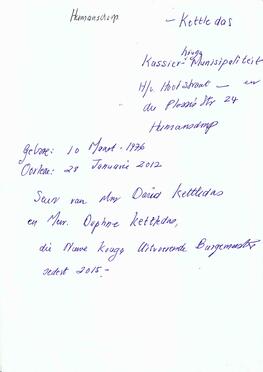 Humansdorp
- Kettledas
Kouga
Kassier - Munisipaliteit
H/v Hoofstraat - en
du Plessis Str 24
Humansdorp
Gebore: 10 Maart - 1976
Oorlede: 28 Januarie 2012
Seun van Mnr David Kettledas
en Mev. Daphne Kettledas,
die Nuwe Kouga Uitvoerende Burgemeester
sedert 2015. -